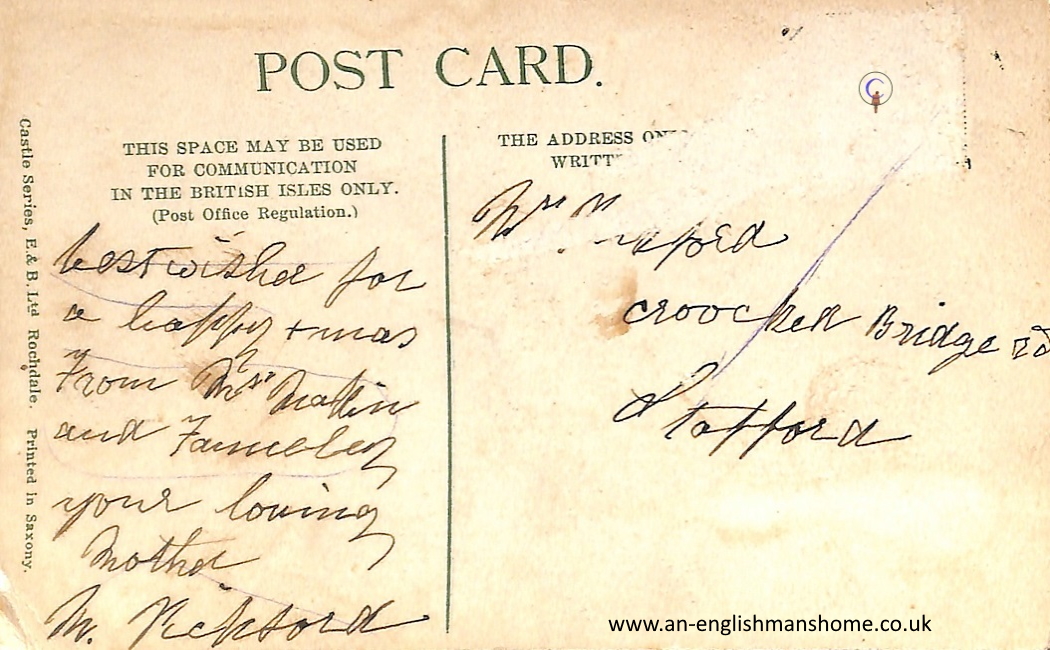 POST CARD.
THIS SPACE MAY BE USED
FOR COMMUNICATION
IN THE BRITISH ISLES ONLY.
(Post Office Regulation.)
THE ADDRESS ON
WRITT
Castle Series, E. & B. Ltd Rochdale. Printed in Saxony.
best wishes for
a happy xmas
From Mrs
and Fameley
your loving
Mother
M.
Mrs
croocked Bridge rd
Stafford
www.an-englishmanshome.co.uk